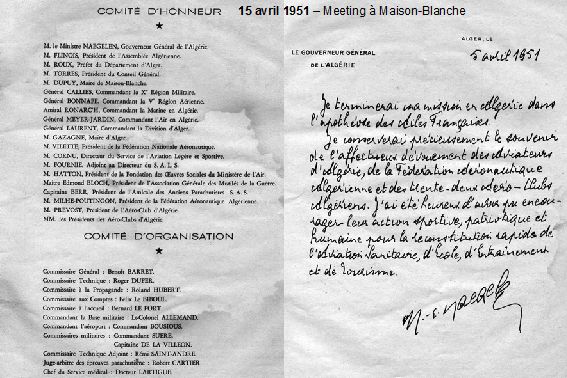 15 avril 1951 – Meeting à Maison-Blanche
COMITÉ D'HONNEUR
M. le Ministre NAEGELEN, Gouverneur Général de l'Algérie.
M. FLINOIS, Président de l'Assemblée Algérienne.
M. ROUX, Préfet du Département d'Alger.
M. TORRES, Président du Conseil Général.
M. DUPUY, Maire de Maison-Blanche
Général CALLIES, Commandant la X° Région Militaire.
Général BONNAFE, Commandant la V° Région Aérienne.
Amiral RONARC'H, Commandant la Marine en Algérie.
Général MEYER-JARDIN, Commandant l'Air en Algérie.
Général LAURENT, Commandant la Division d'Alger.
M. GAZAGNE, Maire d'Alger.
M. VILETTE, Président de la Fédération Nationale Aéronautique.
M. CORNU, Directeur du Service de l'Aviation Légère et Sportive.
M. FOURNIÉ, Adjoint au Directeur du S. A. L. S.
M. HATTON, Président de la Fondation des Œuvres Sociales du Ministère de l'Air.
Maître Edmond BLOCH, Président de l'Association Générale des Mutilés de la Guerre.
Capitaine BERR, Président de l'Amicale des Anciens Parachutistes S. A. S.
M. MILHE-POUTINGON, Président de la Fédération Aéronautique Algérienne.
M. PREVOST, Président de l'Aéro-Club d'Algérie.
MM. les Présidents des Aéro-Clubs d'Algérie.
COMITÉ D'ORGANISATION
Commissaire Général : Benoît BARRET.
Commissaire Technique : Roger DUFER.
Commissaire à la Propagande : Roland HUBERT.
Commissaire aux Comptes : Félix LE BIHOUL.
Commissaire à l'accueil : Bernard LE FORT.
Commandant la Base militaire : Lt-Colonel ALLEMAND.
Commandant l'aéroport : Commandant BOUSIDUS.
Commissaires militaires : Commandant SUERE.
Capitaine DE LA VILLEON.
Commissaire Technique Adjoint : Rémi SAINT-ANDRÉ.
Juge-arbitre des épreuves parachutisme : Robert CARTIER
Chef du Service médical : Docteur LARTIGUE
ALGER, LE
5 avril 1951
LE GOUVERNEUR GÉNÉRAL
DE L'ALGÉRIE
Je terminerai ma mission en Algérie dans
l'apothéose des ailes Françaises.
Je conserverai précieusement le souvenir
de l'affectueux dévouement des aviateurs
d'Algérie, de la Fédération aéronautique
algérienne et des trente-deux aéro-clubs
algériens. J'ai été heureux d'avoir pu encou-
rager leur action sportive, patriotique et
humaine pour la reconstitution rapide de
l'aviation sanitaire, d'école, d'entraînement
et de tourisme.
M.-E. Naegelen